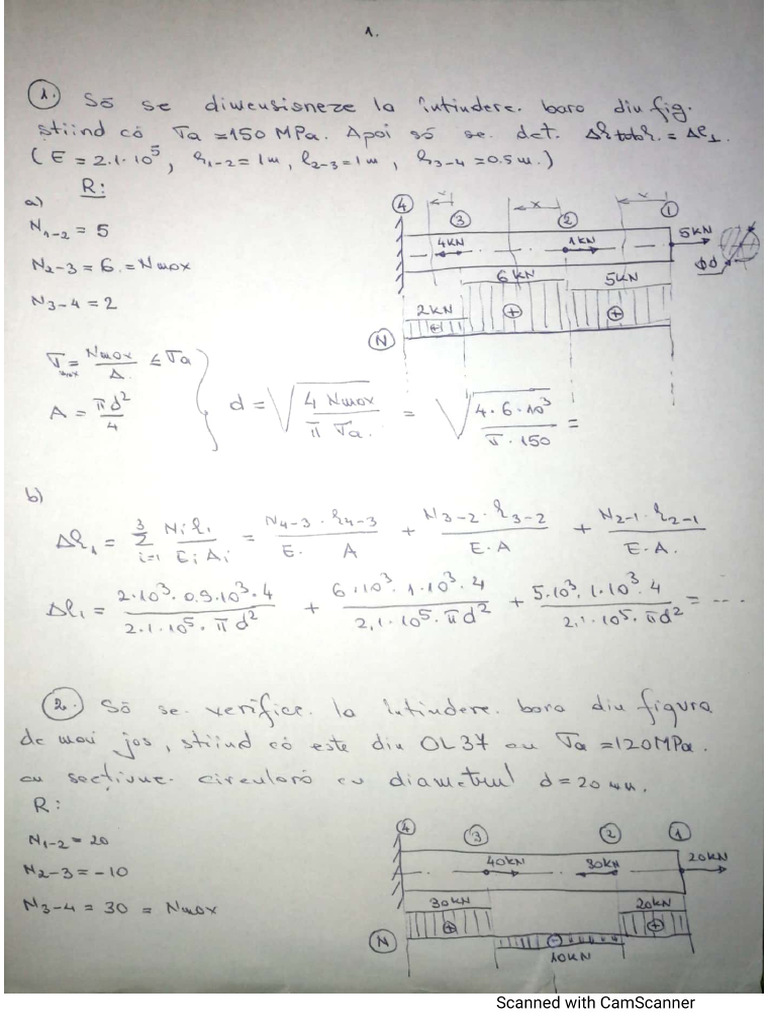 1.
1. Să se dimensioneze la întindere bara din fig.
știind că σa = 150 MPa. Apoi să se det. Δl total = Δl1
(E = 2.1·10^5, l1-2 = 1m, l2-3 = 1m, l3-4 = 0.5m.)
R:
a)
N1-2 = 5
N2-3 = 6 = Nmax
N3-4 = 2
4 3 2 1
4KN 1KN 5KN
6KN 5KN Ød
2KN
N
σmax = Nmax/A ≤ σa
A = πd²/4
d = √(4 Nmax / π σa) = √(4·6·10³ / π·150) =
b)
Δl1 = Σ(i=1, 3) Ni li / Ei Ai = N4-3 · l4-3 / E. A + N3-2 · l3-2 / E·A + N2-1 · l2-1 / E·A.
Δl1 = 2·10³·0.5·10³·4 / 2.1·10^5·πd² + 6·10³·1·10³·4 / 2,1·10^5·πd² + 5·10³·1·10³·4 / 2,1·10^5·πd² = ....
2. Să se verifice la întindere bara din figura
de mai jos, știind că este din OL37 cu σa = 120MPa.
cu secțiune circulară cu diametrul d = 20 mm.
R:
N1-2 = 20
N2-3 = -10
N3-4 = 30 = Nmax
4 3 2 1
40KN 30KN 20KN
30KN 20KN
N
10KN
Scanned with CamScanner